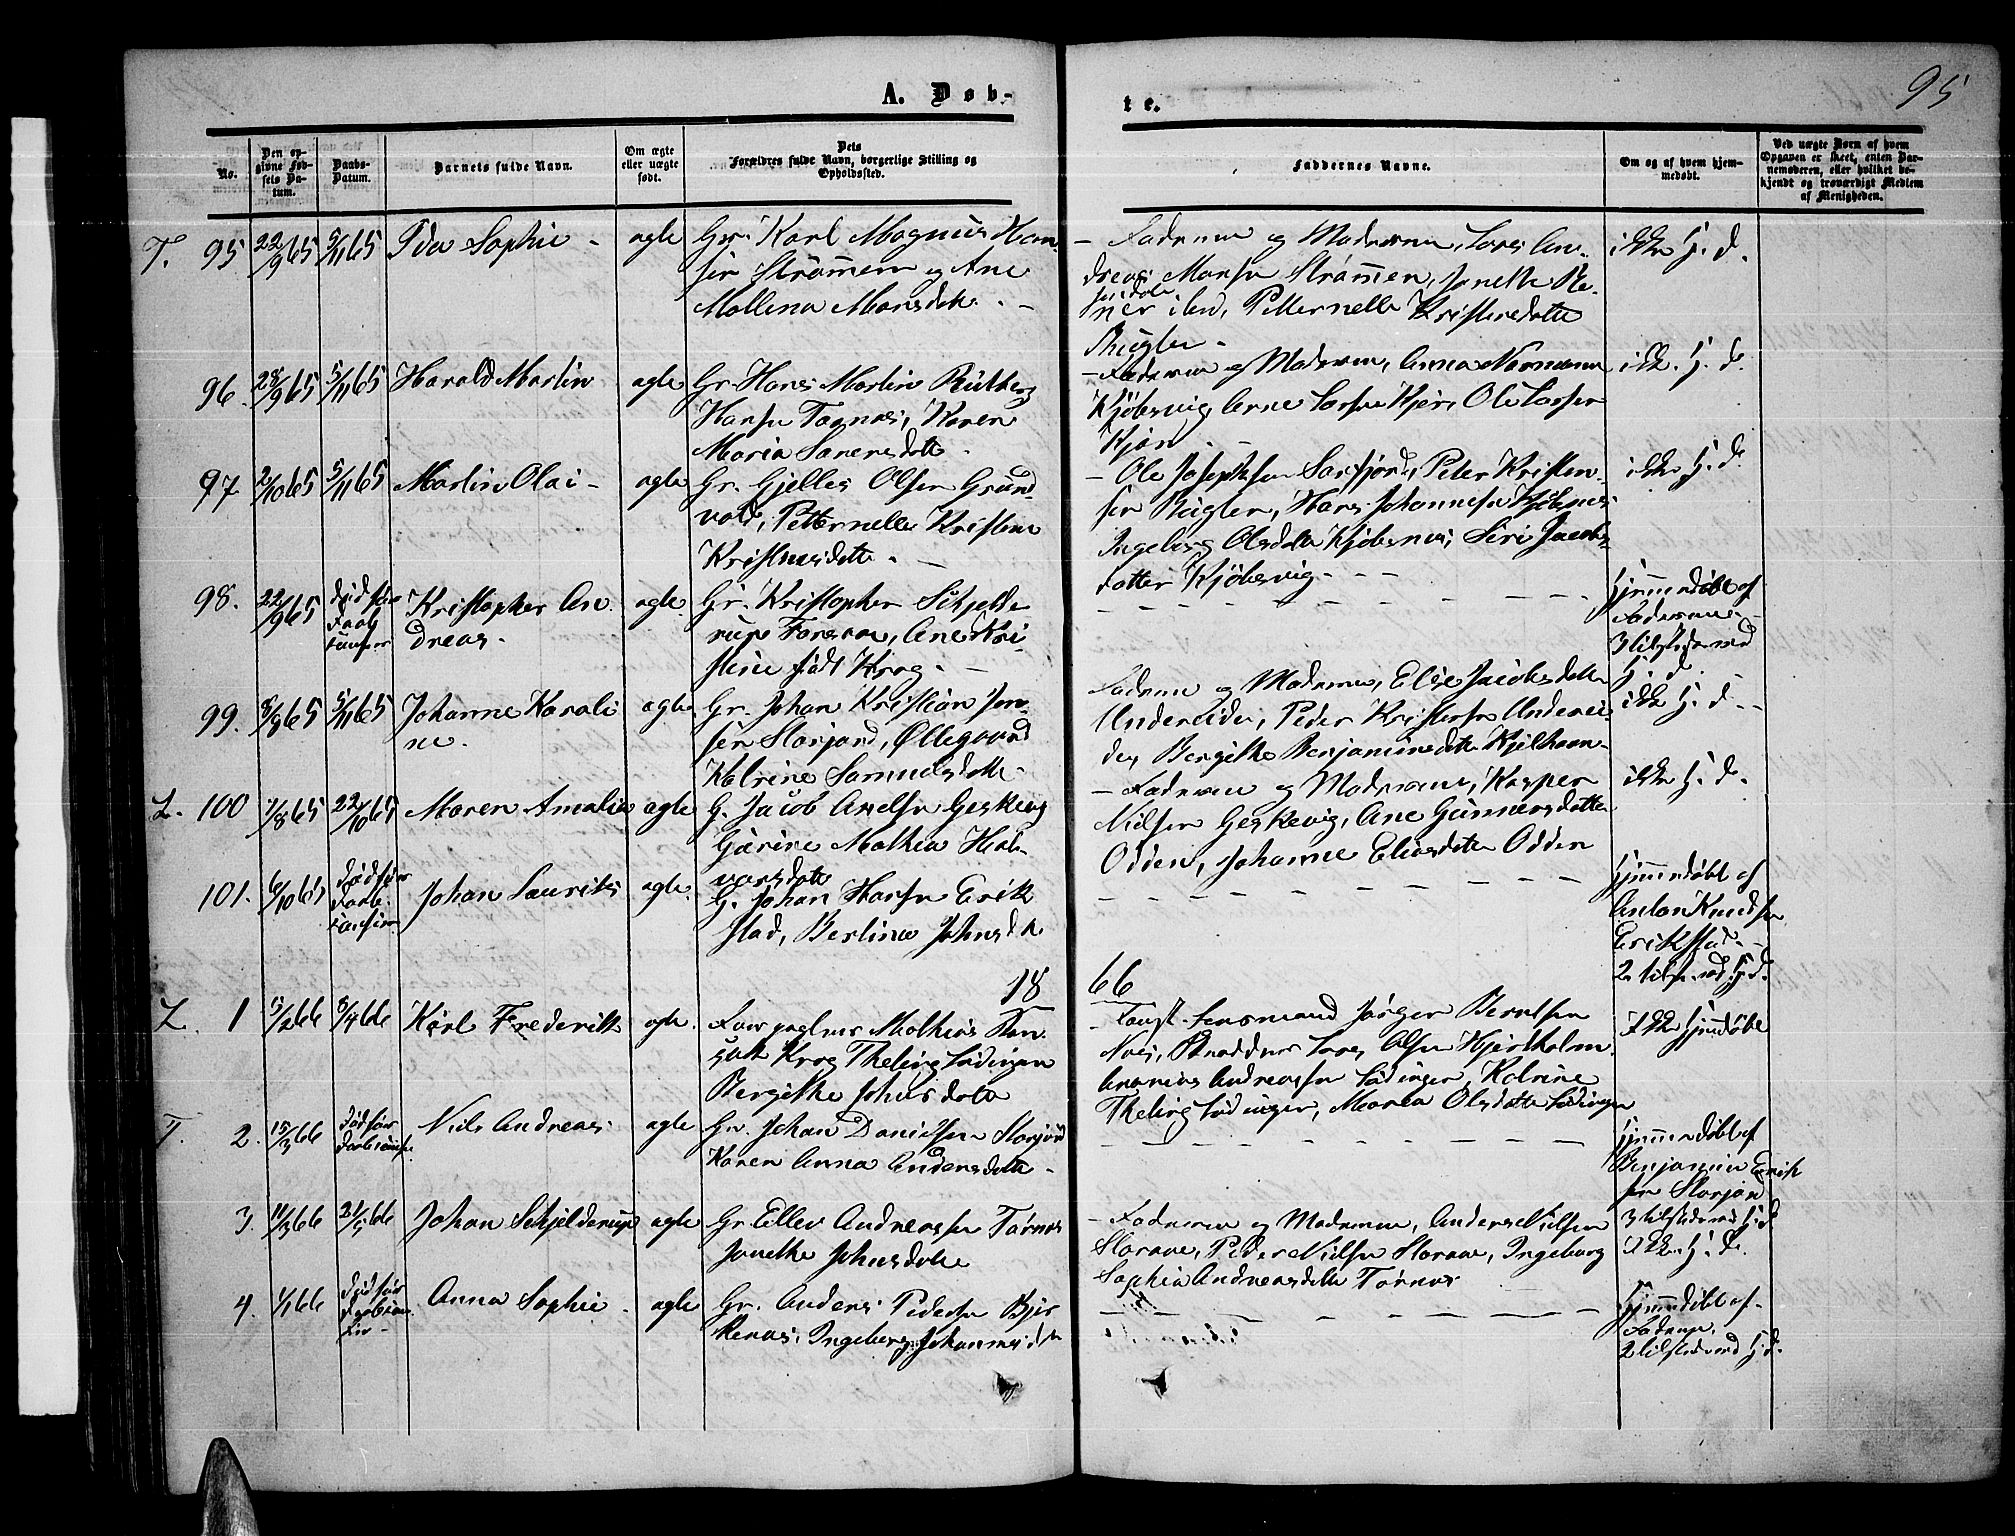 95
A. Døb-
te.
No.
Den opgivne Fødsels Datum.
Daabs-Datum.
Barnets fulde Navn.
Om ægte eller uægte født.
Dets Forældres fulde Navn, borgerlige Stilling og Opholdssted.
Faddernes Navne.
Om og af hvem hjemmedøbt.
Ved uægte Børn af hvem Opgaven er skeet, enten Barnemoderen, eller hvilket bekjendt og troværdigt Medlem af Menigheden.
T. 95 22/9 65 5/11 65 Ida Sophie - ægte Gr. Karl Magnus Han-
sen Strømmen og Ane
Mallena Monsdotr. -
- Faderen og Moderen, Lars An-
dreas Monsen Strømmen, Janette Re-
ner ibid, Petternelle Kristensdatter
Bugten -
ikke hj. d.
96. 28/9 65 5/11 65 Harald Martin ægte Gr. Hans Martin
Hansen Taknes, Karen
Maria Larensdotr.
- Faderen og Moderen, Anna Normann
Kjøbsvig, Arne Larsen Kjær, Ole Larsen
Kjær
ikk. hj. d.
97. 2/10 65 5/11 65 Martin Olai - ægte Gr. Gjellis Olsen Grund-
vold, Petternelle Kristine
Kristensdotr. -
- Ole Josephsen Sarfjord, Peter Kristen-
sen Bugten, Hans Johannesen Kjøbnes
Ingeborg Olsdotr Kjøbsnes, Siri Jacobs-
datter Kjøbsvig - - -
ikke hj. d.
98. 22/9 65 død før
Daab
Kristopher An-
dreas - ægte Gr. Kristopher Schjelde-
rup Fors, Ane Kri-
stine født Krog -
hjemmedøbt af
Faderen -
3 tilstede ved
hj. d.
99. 8/8 65 5/11 65 Johanne Karoli-
ne. ægte Gr. Johan Kristian Jen-
sen Storjord, Øllegaard
Katrine Samuelsdotr.
Faderen og Moderen, Elise Jacobsdotr
Undereidet, Peder Kristensen Underei-
det, Bergitte Benjaminsdotr Kjelhavn -
ikke hj. d. -
L. 100 7/8 65 22/10 65 Maren Amalie ægte G. Jacob Axelsen Geskevig
Gurine Mathea Hal-
vorsdotr
- Faderen og Moderen, Kasper
Nielsen Geskevig, Ane Gunnersdotter
Odden, Johanne Eliasdotr Odden
ikke hj. d.
101. 6/10 65 død før
Johan Laurits ægte. G. Johan Hansen Erik-
stad, Berline Johnsdtr
hjemmedøbt af
Anton Knudsen
Erikstad -
2 tilst. ved hj. d.
1866
L. 1 13/2 66 8/4 66 Karl Frederik ægte. Mathias Han-
sak Krog Theling Lødingen
Bergitte Johnsdotr
- Lensmand Jørgen Berntsen
Nes, Lars Olsen Hjertholm
Ananias Andreassen Lødingen, Katrine
Theling Lødingen, Maren Olsdotr Lødingen
Ikke hjemdøbt
T. 2. 15/3 66 død før
Daab
Nils Andreas ægte Gr. Johan Danielsen Storjord
Karen Anna Andersdotr -
hjemmedøbt af
Benjamin Erik-
sen Storjord
3 tilstede ved hj. d.
3. 11/3 66 21/5 66 Johan Schjelderup ægte Gr. Ellev Andreassen Tarnes
Janethe Johnsdotr
- Faderen og Moderen, Anders Nielsen
Storaae, Peder Nielsen Storaae, Ingeborg
Sophia Andreasdotr Tarnes
Ikke hj. d.
4. 1/1 66 død før
Anna Sophie ægte Gr. Anders Pedersen Bjør-
kenes, Ingeborg Johannesdtr
hjemmdøbt af
Faderen,
2 tilstede ved hj. d.